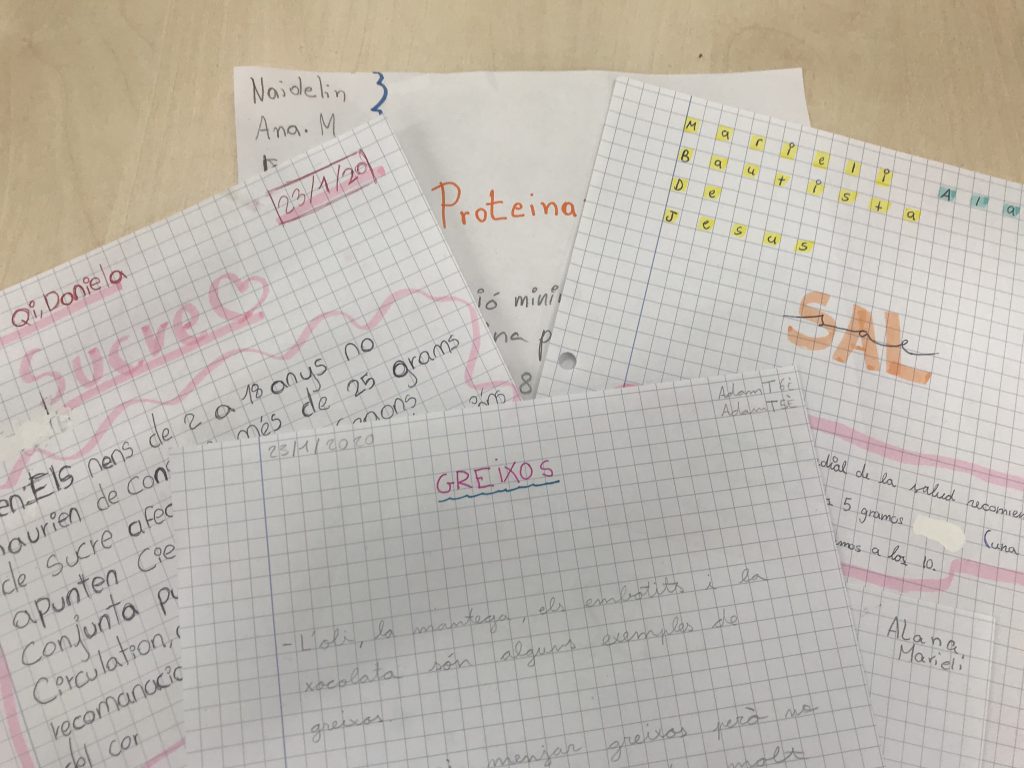 Naidelin
Ana. M
Proteina
ió mini
na p
8
23/1/20
Qi, Daniela
Sucre
Els nens de 2 a 18 anys no
més de 25 grams
de con
de sucre afec
apunten Cie
conjunta p
Circulation,
recomanacio
del cor
Marieli
Bautista
De
Jesus
Ala
SAL
sal
dial de la salud recomien
5 gramos (una
mos a los 10.
Alana
Marieli
23/1/2020
GREIXOS
- L'oli, la mantega, els embotits i la
xocolata són alguns exemples de
greixos.
menjar greixos però no
molt